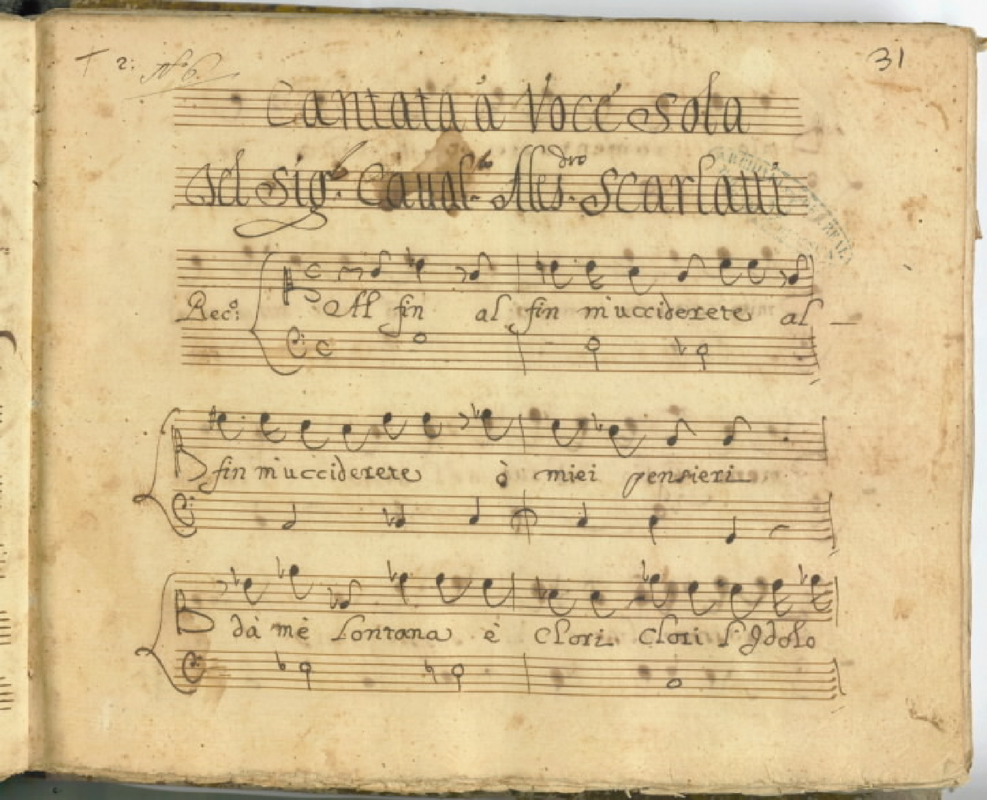 T 2: N.º 6. 31
Cantata á Voce Sola
Del Sigr. Caual.re Ales.dro Scarlatti
Reco: Al fin al fin m'ucciderete al
fin m'ucciderete ò miei pensieri
dà mè Lontana è Clori Clori l'Idolo